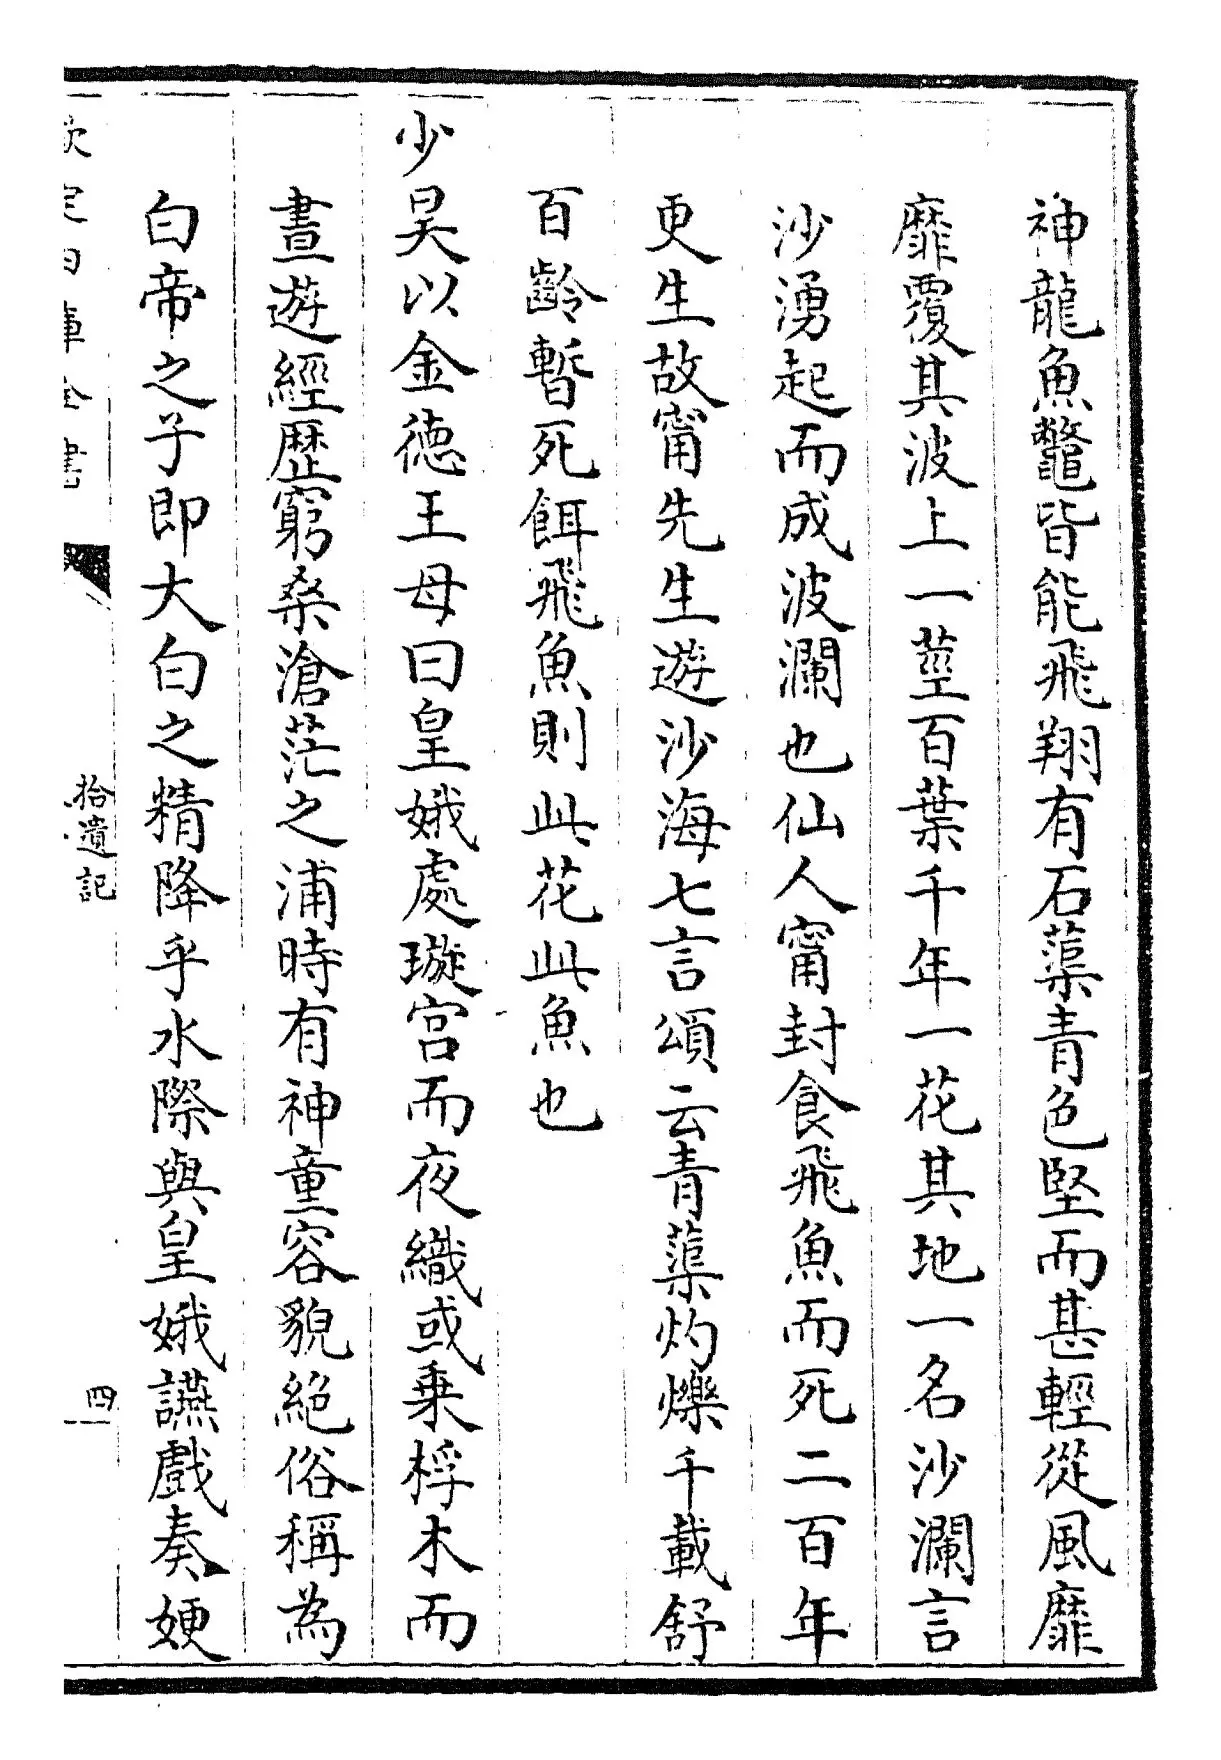 神龍魚鼈皆能飛翔有石蕖青色堅而甚輕從風靡
靡覆其波上一莖百葉千年一花其地一名沙瀾言
沙湧起而成波瀾也仙人甯封食飛魚而死二百年
更生故甯先生遊沙海七言頌云青蕖灼爍千載舒
百齡暫死餌飛魚則此花此魚也
少昊以金德王母曰皇娥處璇宫而夜織或乗桴木而
晝遊經歴窮桑滄茫之浦時有神童容貌絶俗稱為
白帝之子即大白之精降乎水際與皇娥讌戲奏㛐
欽定四庫全書
拾遺記
四